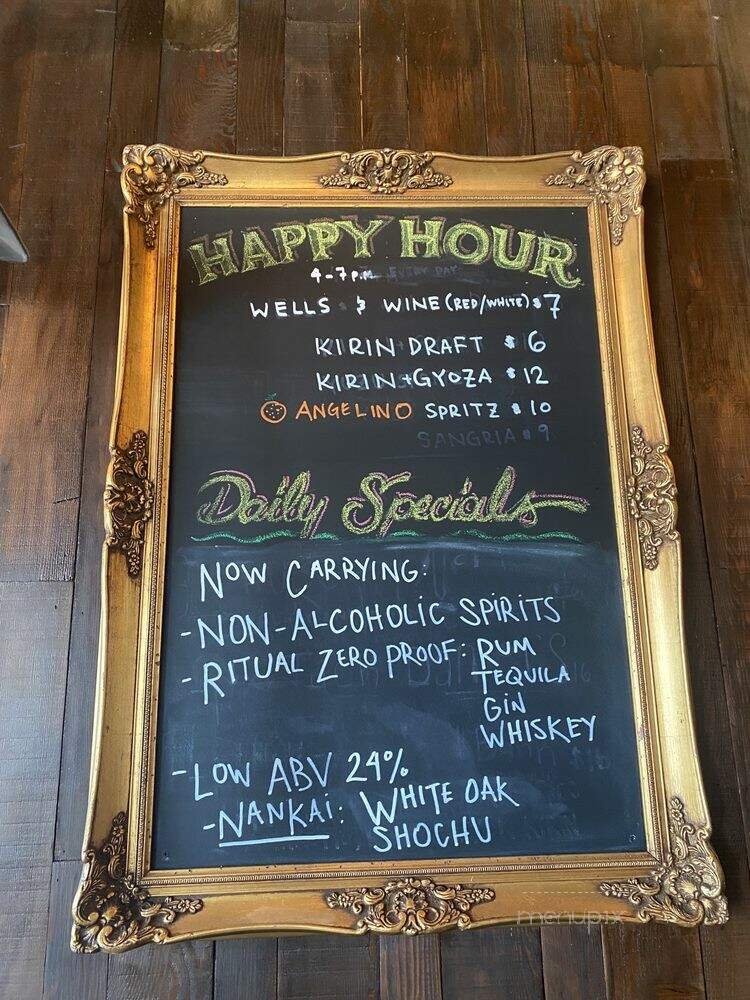 HAPPY HOUR
4-7 P.M. EVERY DAY
WELLS & WINE (RED/WHITE) $7
KIRIN DRAFT $6
KIRIN+GYOZA $12
ANGELINO SPRITZ $10
SANGRIA $9
Daily Specials
NOW CARRYING:
-NON-ALCOHOLIC SPIRITS
-RITUAL ZERO PROOF: RUM
TEQUILA
GIN
WHISKEY
-LOW ABV 24%
-NANKAI: WHITE OAK
SHOCHU
menupix